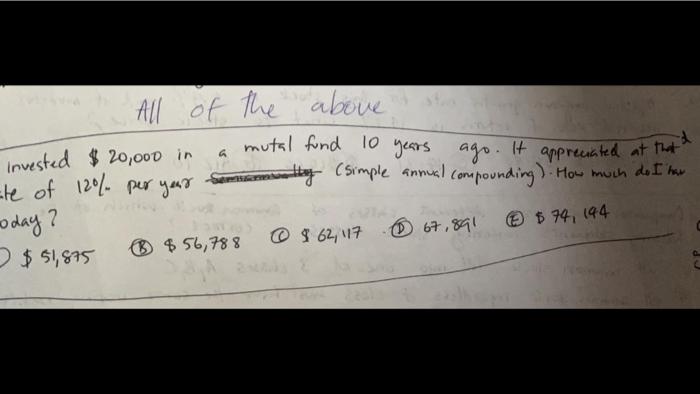 All of the above
Invested $20,000 in a mutal fund 10 years ago. It appreciated at that
te of 12% per year (simple annual compounding). How much do I hav
oday?
$ 51,875 (B) $ 56,788 (C) $ 62,117 (D) 67,891 (E) $ 74,194